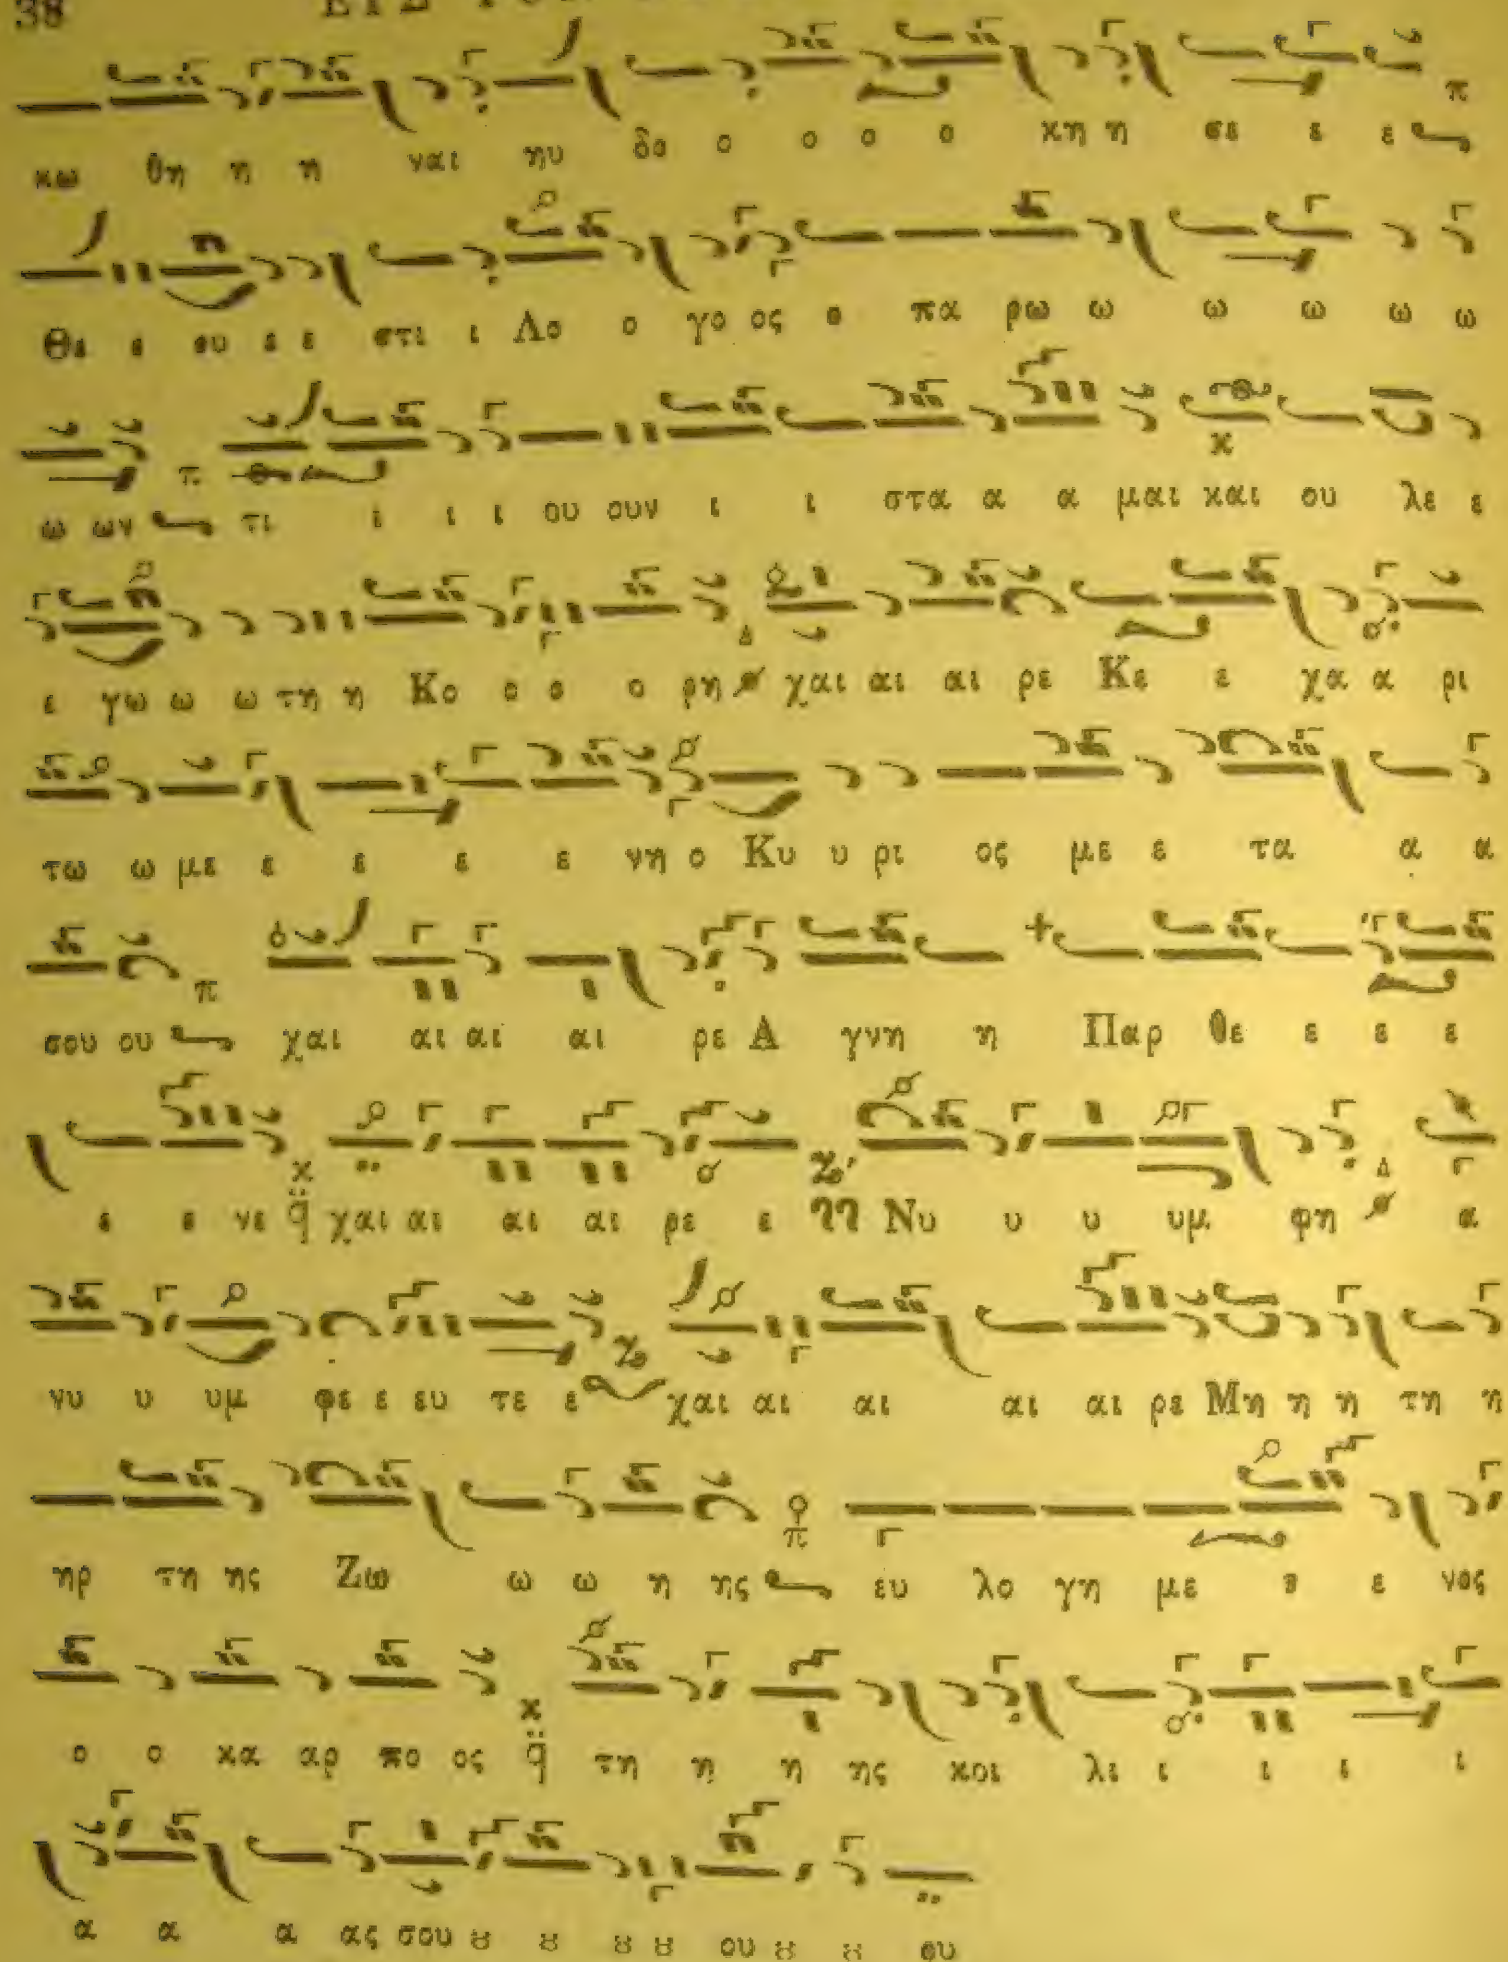 38
κω θη η η ναι ηυ δο ο ο ο ο κη η σε ε ε
Θε ε ου ε ε στι ι Λο ο γο ος ο πα ρω ω ω ω ω ω
ω ων τι ι ι ι ου ουν ι ι στα α α μαι και ου λε ε
ε γω ω ω τη η Κο ο ο ο ρη χαι αι αι ρε Κε ε χα α ρι
τω ω με ε ε ε ε νη ο Κυ υ ρι ος με ε τα α α
σου ου χαι αι αι αι ρε Α γνη η Παρ θε ε ε ε
ε ε νε χαι αι αι αι ρε ε Νυ υ υ υμ φη α
νυ υ υμ φε ε ευ τε ε χαι αι αι αι αι ρε Μη η η τη η
ηρ τη ης Ζω ω ω η ης ευ λο γη με ε ε νος
ο ο κα αρ πο ος τη η η ης κοι λι ι ι ι ι
α α α ας σου ȣ ȣ ȣ ȣ ου ȣ ȣ ου